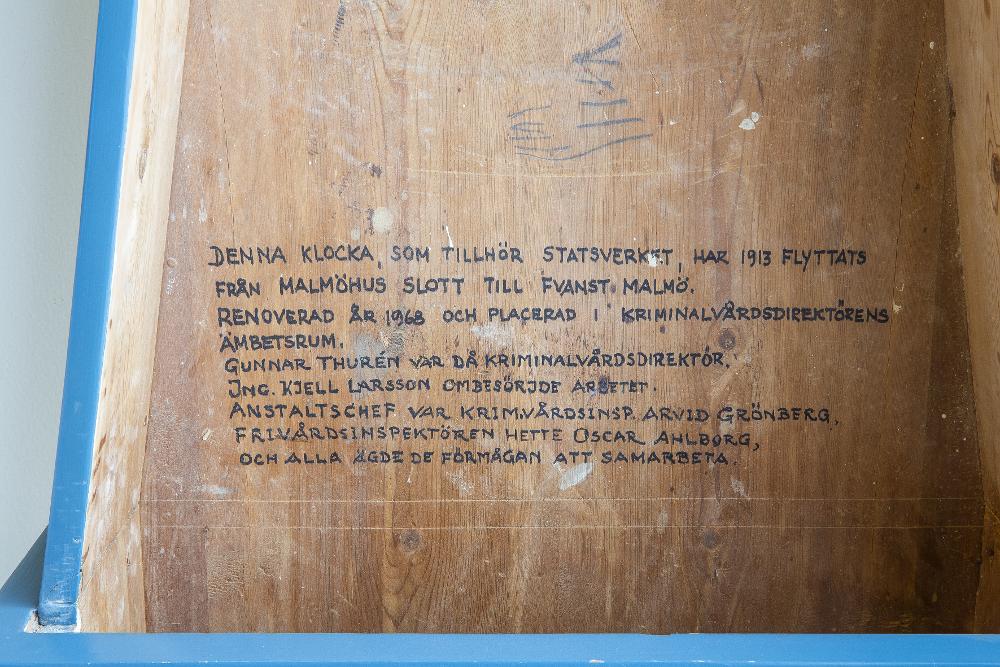 DENNA KLOCKA, SOM TILLHÖR STATSVERKET, HAR 1913 FLYTTATS
FRÅN MALMÖHUS SLOTT TILL FVANST. MALMÖ.
RENOVERAD ÅR 1968 OCH PLACERAD I KRIMINALVÅRDSDIREKTÖRENS
ÄMBETSRUM.
GUNNAR THURÉN VAR DÅ KRIMINALVÅRDSDIREKTÖR.
ING. KJELL LARSSON OMBESÖRJDE ARBETET.
ANSTALTSCHEF VAR KRIM.VÅRDSINSP. ARVID GRÖNBERG,
FRIVÅRDSINSPEKTÖREN HETTE OSCAR AHLBORG,
OCH ALLA ÄGDE DE FÖRMÅGAN ATT SAMARBETA.